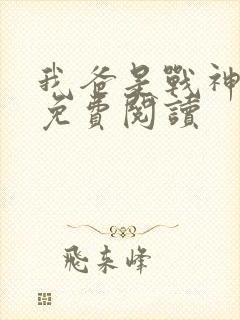 我爸是戰神
免費閱讀
飛來峰